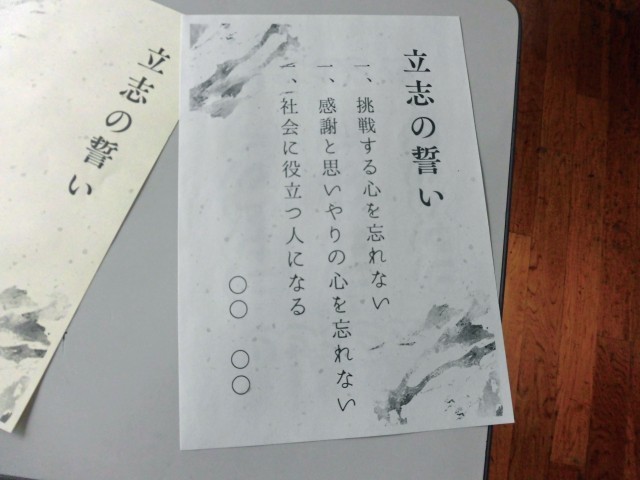 立志の誓い
一、挑戦する心を忘れない
一、感謝と思いやりの心を忘れない
一、社会に役立つ人になる
〇〇 〇〇
立志の誓い